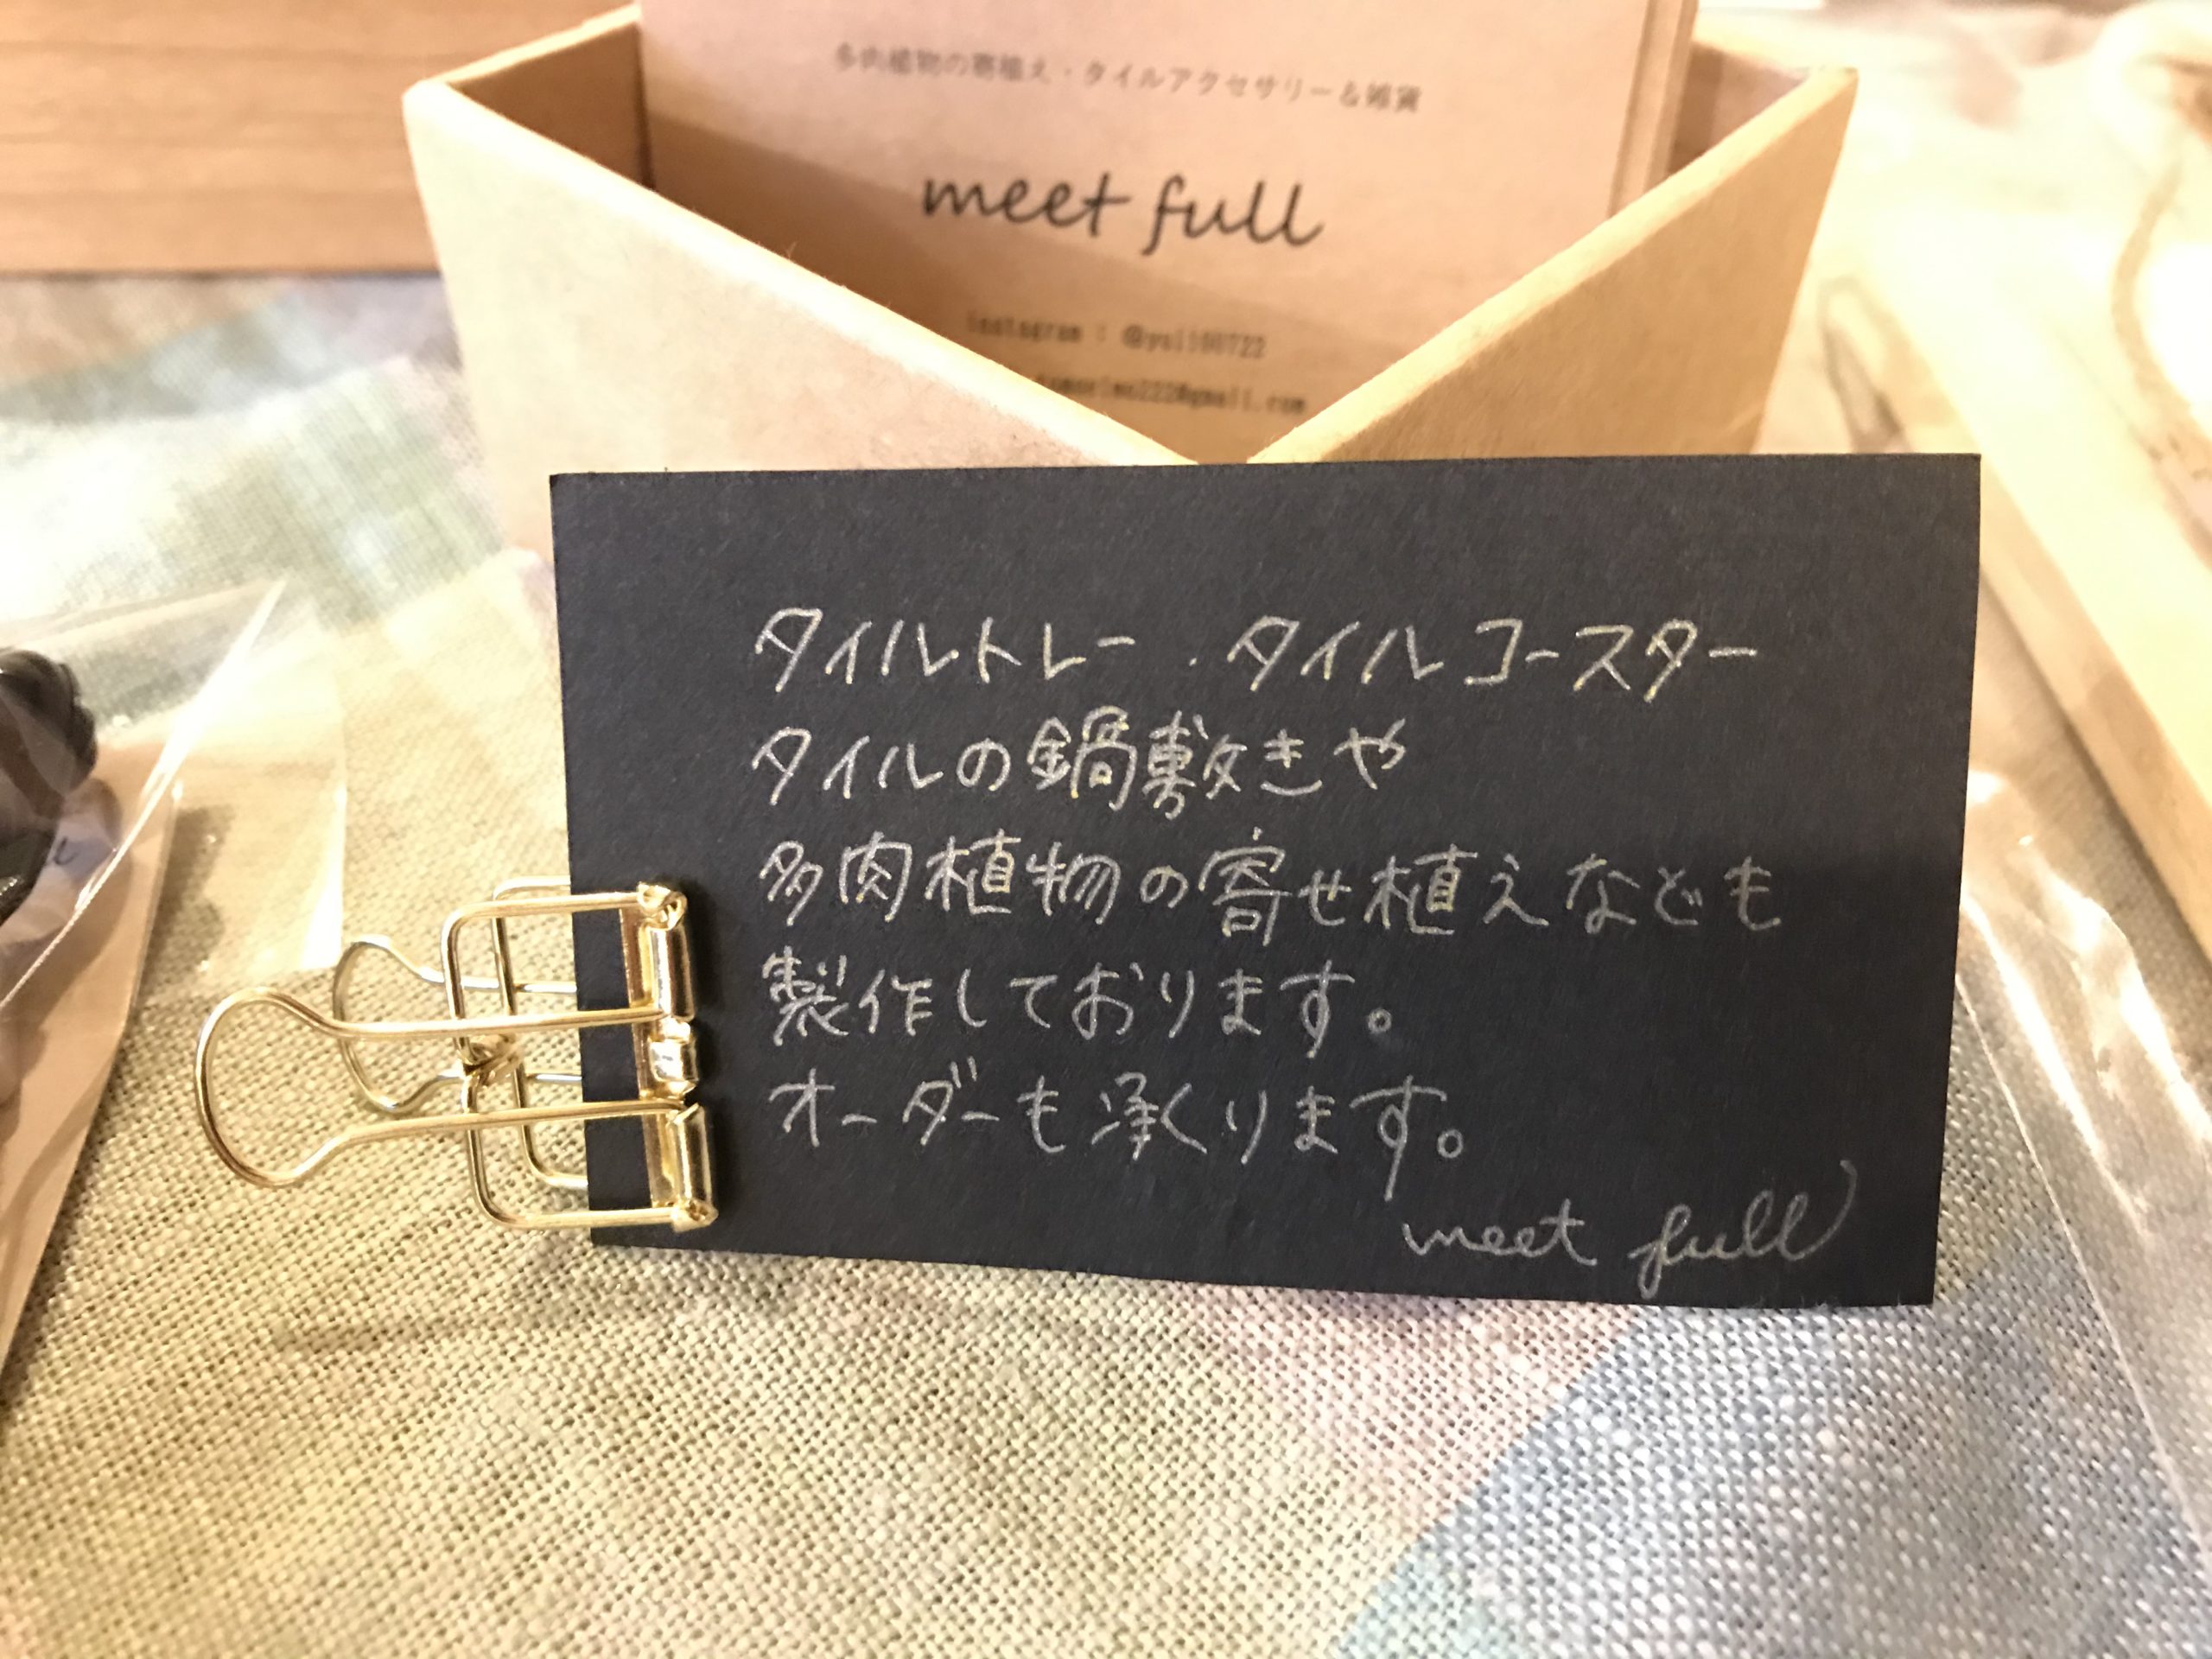 多肉植物の寄植え・タイルアクセサリー&雑貨
meet full
instagram : @yu1100722
タイルトレー ・タイルコースター
タイルの鍋敷きや
多肉植物の寄せ植えなども
製作しております。
オーダーも承くります。
meet full